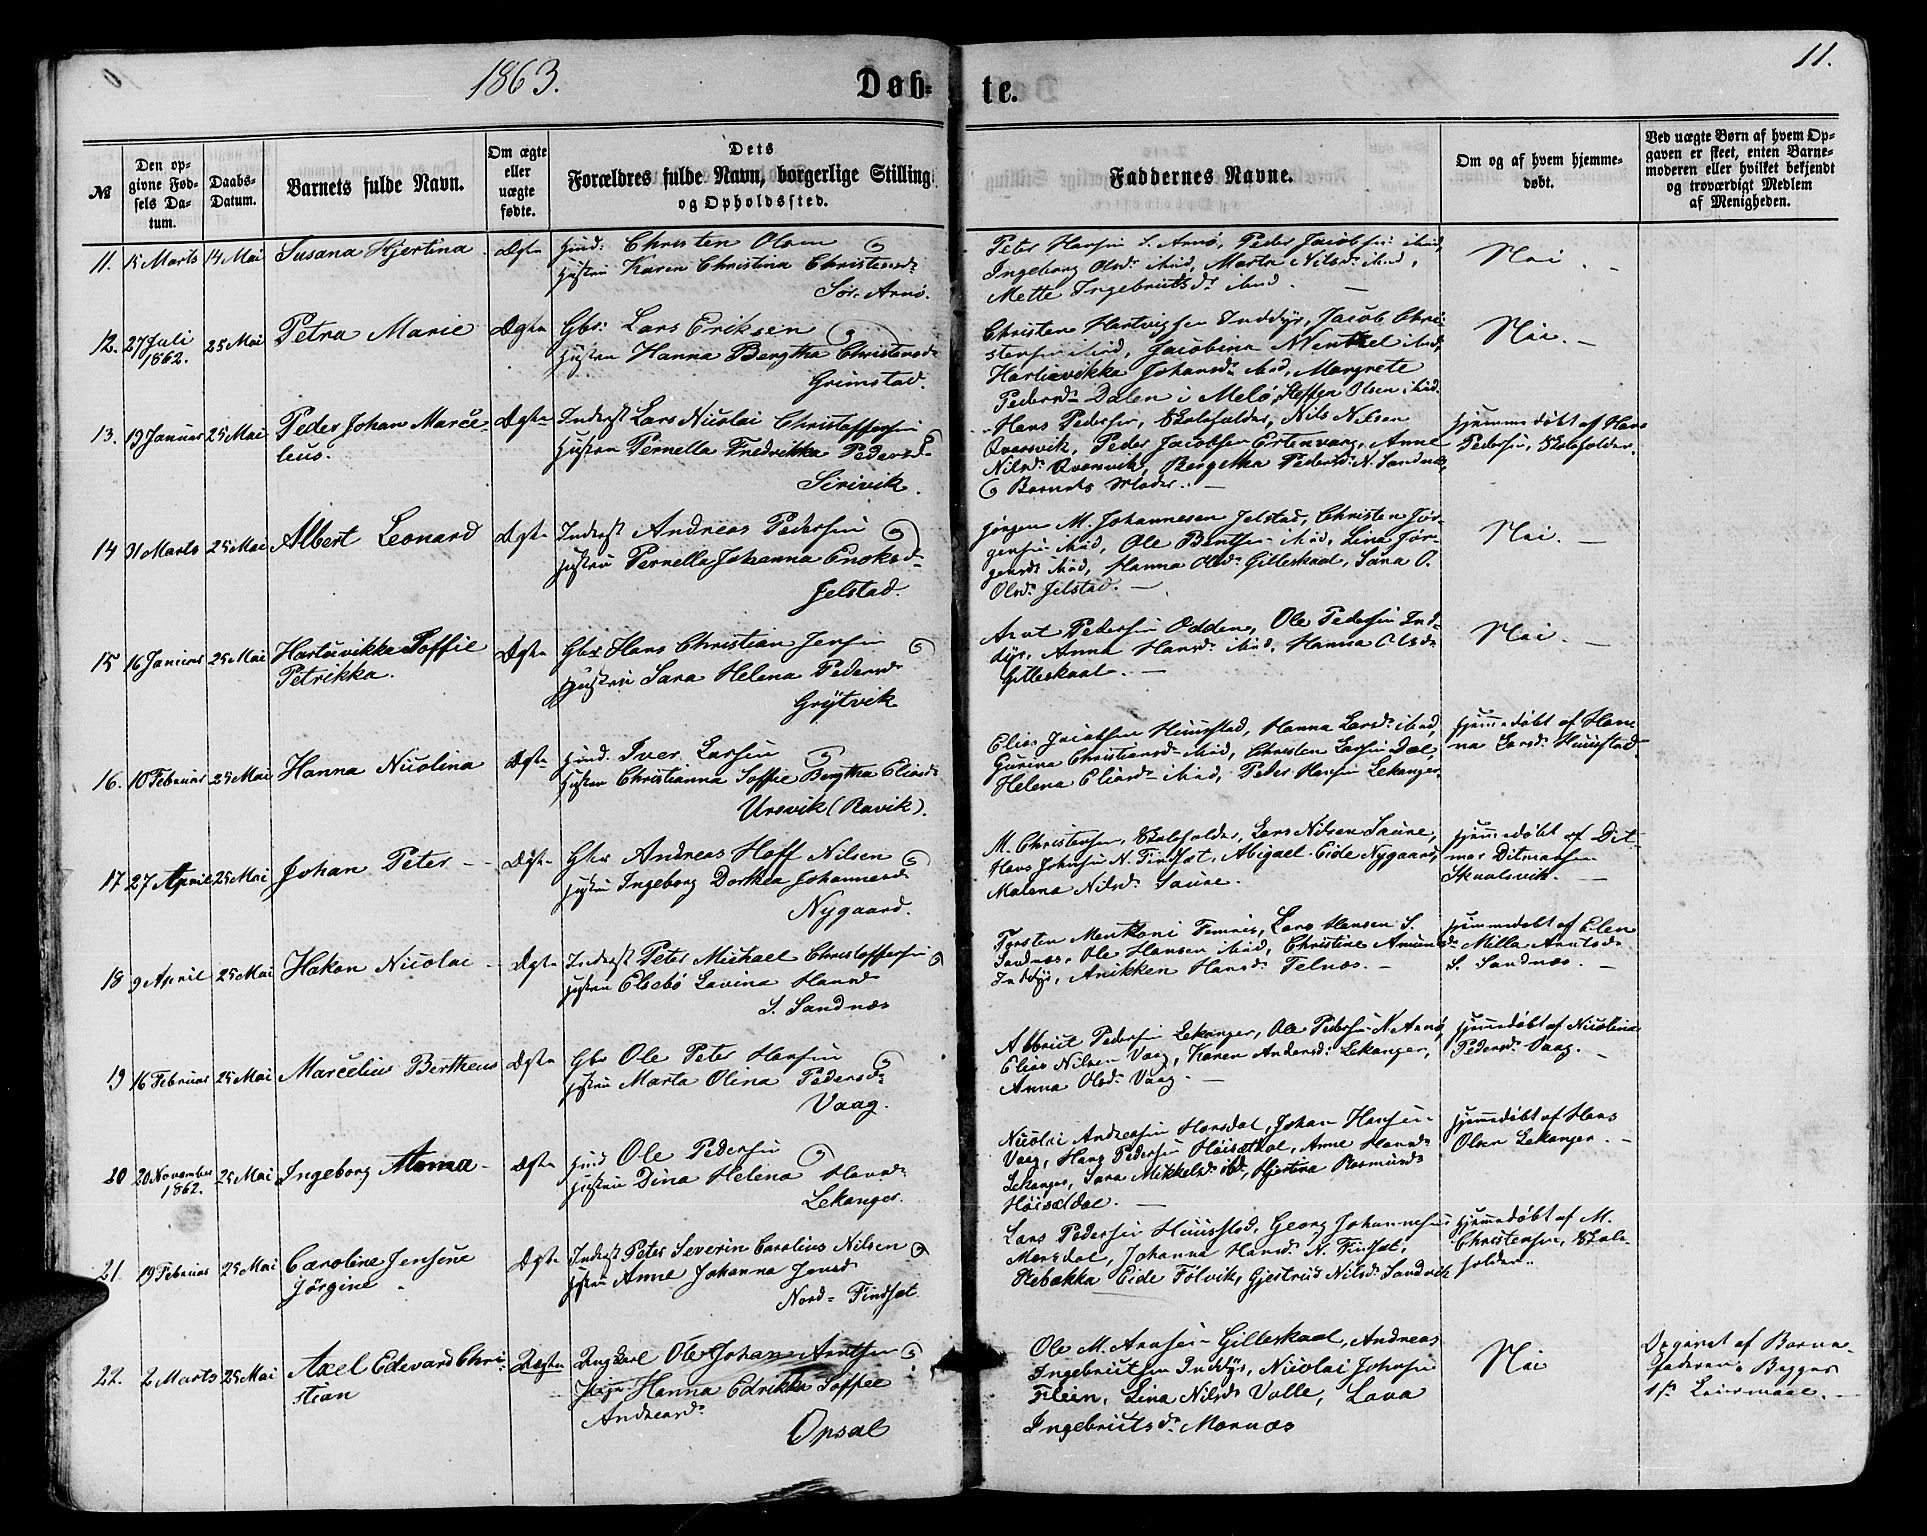 1863.
Døb-
te.
11.
№
Den op-
givne Fød-
sels Da-
tum.
Daabs-
Datum.
Barnets fulde Navn.
Om ægte
eller
uægte
fødte.
Dets
Forældres fulde Navn, borgerlige Stilling
og Opholdssted.
Faddernes Navne.
Om og af hvem hjemme-
døbt.
Ved uægte Børn af hvem Op-
gaven er skeet, enten Barne-
moderen eller hvilket bekjendt
og troværdigt Medlem
af Menigheden.
11. 15 Marts 14 Mai Susana Hjertina Ægte
Huud: Christen Olsen
Hustru Karen Christina Christensd:
Sør-Arnø.
Peter Hansen S. Arnø, Peder Jacobsen ibid,
Ingeborg Olsd: ibid, Marta Nilsd: ibid,
Mette Ingebrigtsd: ibid.
Nei.
12. 27 Juli 1862. 25 Mai Petra Marie Ægte
Gbr: Lars Eriksen
Hustru Hanna Bergtha Christensd:
Grimstad.
Christen Hartvigsen Inddyr, Jacob Chri-
stensen ibid, Jacobina Wentzel ibid,
Hartvikka Johansd: ibid, Margrete
Pedersd: Dalen i Melø, Steffen Olsen ibid.
Nei.
13. 19 Januar 25 Mai Peder Johan Marce-
leus.
Ægte
Inderst Lars Nicolai Christoffersen
Hustru Pernella Fredrikka Pedersd:
Sirivik.
Hans Pedersen, Skoleholder, Nils Nilsen
Qversvik, Peder Jacobsen Ertenvaag, Anne
Nilsd: Qversvik, Bergetha Pedersd: N. Sandnæs,
& Barnets Moder.
Hjemmedøbt af Hans
Pedersen, Skoleholder.
14 31 Marts 25 Mai Albert Leonard Ægte
Inderst Andreas Pedersen
Hustru Pernella Johanna Enoksd:
Jelstad.
Jørgen M. Johannesen Jelstad, Christen Jør-
gensen ibid, Ole Bentsen ibid, Lina Jør-
gensd: ibid, Hanna Olsd: Gilleskaal, Sara O.
Olsd: Jelstad.
Nei.
15 16 Januar 25 Mai Hartvikke Soffie
Petrikka.
Ægte
Gbr Hans Christian Jensen
Hustru Sara Helena Pedersd:
Grytvik
Arnt Pedersen Odden, Ole Pedersen Ind-
dyr, Anna Hansd: ibid, Hanna Olsd:
Gilleskaal.
Nei.
16. 10 Februar 25 Mai Hanna Nicolina Ægte
Huud. Iver Larsen
Hustru Christianna Soffie Bergtha Eliasd:
Ursvik (Ravik).
Elias Jacobsen Huustad, Hanna Larsd: ibid,
Gurina Christiansd: ibid, Christen Larsen Dal,
Helena Eliasd: ibid, Peder Hansen Lekanger.
Hjemmedøbt af Han-
na Larsd: Huustad
17 27 April 25 Mai Johan Peter Ægte
Gbr Andreas Hoff Nilsen
Hustru Ingeborg Dorthea Johannesd:
Nygaard.
M. Christensen, Skoleholder, Lars Nilsen Saure,
Hans Johnsen N. Findset, Abigael Eide Nygaard,
Malena Nilsd: Saure.
Hjemmedøbt af Dit-
mar Ditmarsen
Skaalsvik.
18 9 April 25 Mai Hakon Nicolai Ægte
Inderst Peter Michael Christoffersen
Hustru Elsebø Lavina Hansd:
S. Sandnæs
Torsten Mentzoni Femris, Lars Hansen S.
Sandnæs, Ole Hansen ibid, Christine Amunds:
Inddyr, Anikken Hansd: Telnæs.
Hjemmedøbt af Elen
Milla Arntsd:
S. Sandnæs.
19 16 Februar 25 Mai Marcelius Bertheus Ægte
Gbr Ole Peter Hansen
Hustru Marta Olina Pedersd:
Vaag.
Albrict Pedersen Lekanger, Ole Pedersen N. Arnø,
Elias Nilsen Vaag, Karen Andersd: Lekanger,
Anna Olsd: Vaag.
Hjemmedøbt af Nicolina
Pedersd: Vaag.
20 20 November 1862. 25 Mai Ingeborg Anna Ægte
Huud Ole Pedersen
Hustru Dina Helena Hansd:
Lekanger.
Nicolai Andreasen Horsdal, Johan Hansen
Vaag, Hans Pedersen Høisetdal, Anne Hansd:
Lekanger, Sara Mikkelsd: ibd, Hjertina Rasmusd:
Høisetdal.
Hjemmedøbt af Hans
Olsen Lekanger.
21. 19 Februar 25 Mai Caroline Jensine
Jørgine
Ægte
Inderst Peter Severin Carolius Nilsen
Hustru Anne Johanna Jensd:
Nord-Findset.
Lars Pedersen Huusstad, Georg Johannesen
Morsdal, Johanna Hansd: N. Finset,
Rebekka Eide Følvik, Gjertrud Nilsd: Sandvik
Hjemmedøbt af M.
Christensen, Skole-
holder.
22. 2 Marts 25 Mai Axel Edevard Chri-
stian
Uægte
Ungkarl Ole Johan Arntsen
Pige Hanna Edrikka Soffie
Andreasd:
Opsal
Ole M. Arntsen Gilleskaal, Andreas
Ingebrictsen Inddyr, Nicolai Johnsen
Flein, Lina Nilsd: Valle, Lava
Ingebrictsd: Mornæs
Nei
Opgivet af Barne-
faderen. Begges
1ste Leiermaal.